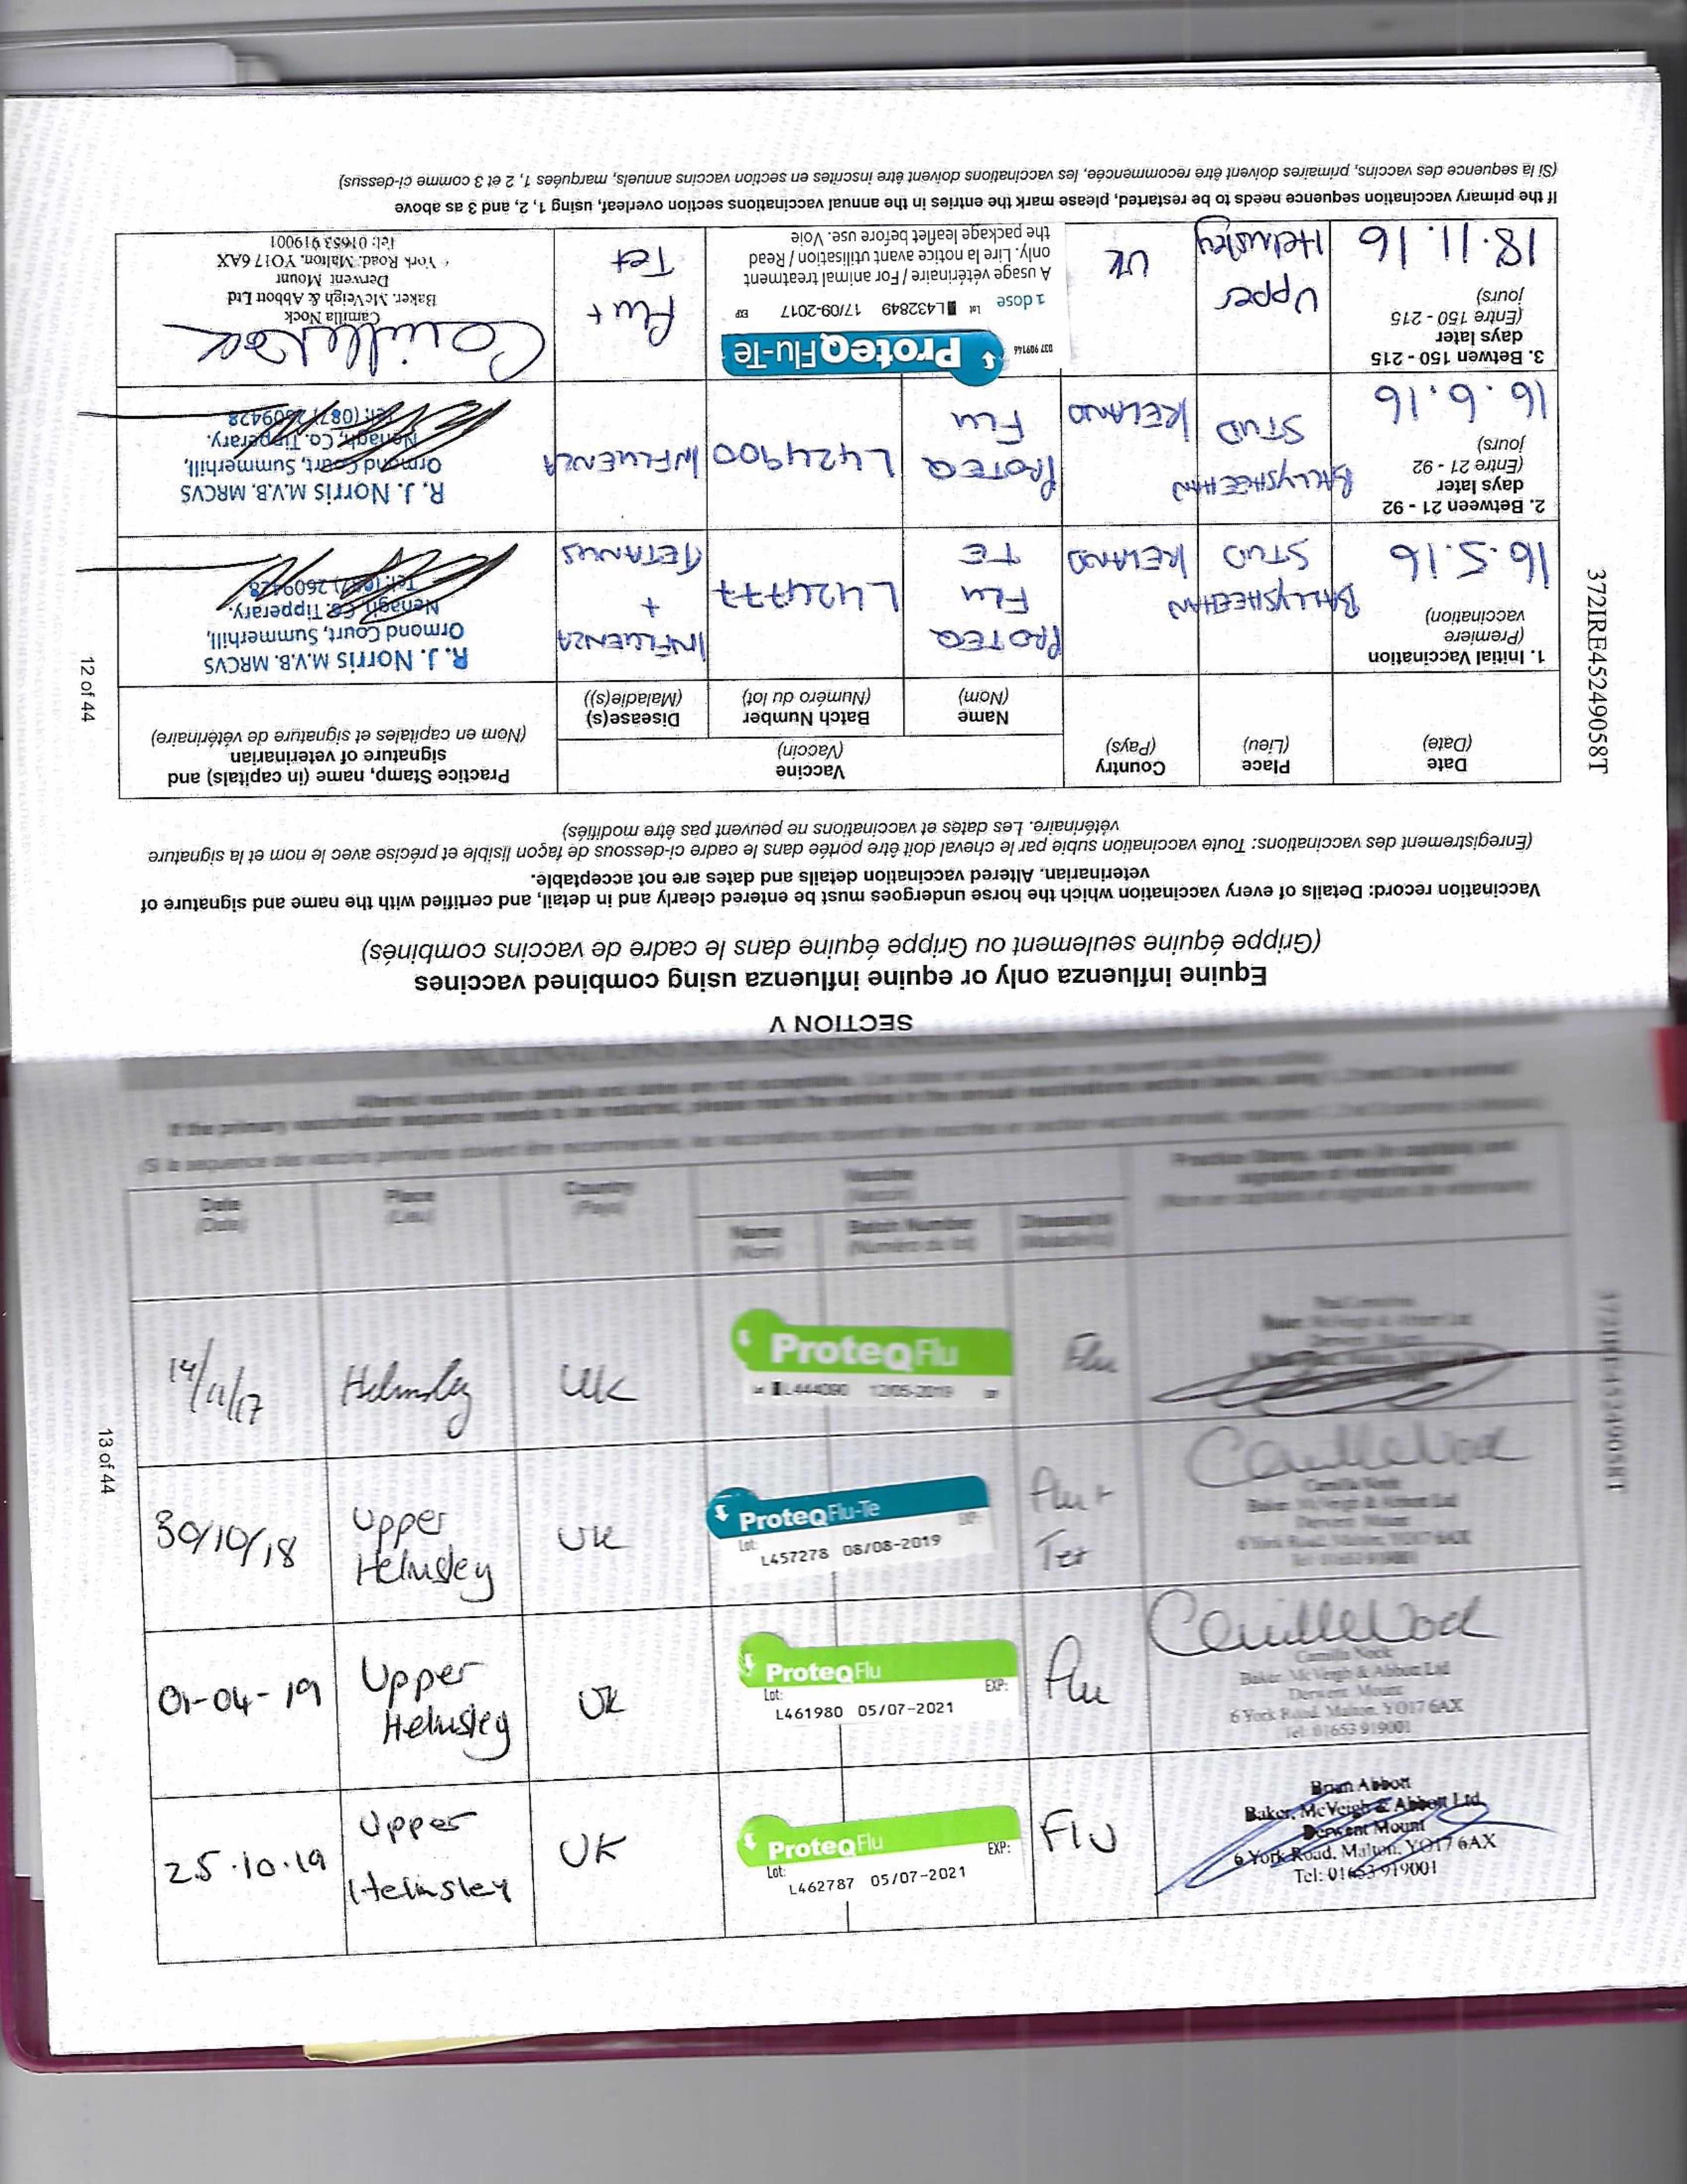 SECTION V
Equine influenza only or equine influenza using combined vaccines
(Grippe équine seulement ou Grippe équine dans le cadre de vaccins combinés)
Vaccination record: Details of every vaccination which the horse undergoes must be entered clearly and in detail, and certified with the name and signature of
veterinarian. Altered vaccination details and dates are not acceptable.
(Enregistrement des vaccinations: Toute vaccination subie par le cheval doit être portée dans le cadre ci-dessous de façon lisible et précise avec le nom et la signature
vétérinaire. Les dates et vaccinations ne peuvent pas être modifiés)
Date
(Date)
Place
(Lieu)
Country
(Pays)
Vaccine
(Vaccin)
Name
(Nom)
Batch Number
(Numéro du lot)
Disease(s)
(Maladie(s))
Practice Stamp, name (in capitals) and
signature of veterinarian
(Nom en capitales et signature de vétérinaire)
1. Initial Vaccination
(Premiere
vaccination)
16.5.16
BALLYSHEEHAN
STUD
IRELAND
PROTEQ
FLU
TE
L424777
INFLUENZA
+
TETANUS
R. J. Norris M.V.B. MRCVS
Ormond Court, Summerhill,
Nenagh, Co. Tipperary.
Tel: (087) 2609428
2. Between 21 - 92
days later
(Entre 21 - 92
jours)
16.6.16
BALLYSHEEHAN
STUD
IRELAND
PROTEQ
FLU
L424900
INFLUENZA
R. J. Norris M.V.B. MRCVS
Ormond Court, Summerhill,
Nenagh, Co. Tipperary.
Tel: (087) 2609428
3. Betwen 150 - 215
days later
(Entre 150 - 215
jours)
18.11.16
Upper
Helmsley
UK
037 909146
ProteqFlu-Te
1 dose Lot L432849 17/09-2017 EXP
A usage vétérinaire / For animal treatment
only. Lire la notice avant utilisation / Read
the package leaflet before use. Voie
Flu+
Tet
Camilla Nock
Baker, McVeigh & Abbott Ltd
Derwent Mount
York Road, Malton, YO17 6AX
Tel: 01653 919001
If the primary vaccination sequence needs to be restarted, please mark the entries in the annual vaccinations section overleaf, using 1, 2, and 3 as above
(Si la sequence des vaccins, primaires doivent être recommencée, les vaccinations doivent être inscrites en section vaccins annuels, marquées 1, 2 et 3 comme ci-dessus)
372IRE45249058T
12 of 44
Altered vaccination details and dates are not acceptable.
If the primary vaccination sequence needs to be restarted, please mark the entries in the annual vaccinations section below, using
Date
(Date)
Place
(Lieu)
Country
(Pays)
Vaccine
(Vaccin)
Name
(Nom)
Batch Number
(Numéro du lot)
Disease(s)
(Maladie(s))
Practice Stamp, name (in capitals) and
signature of veterinarian
(Nom en capitales et signature de vétérinaire)
14/11/17
Helmsley
UK
ProteqFlu
L444090 12/05-2019
Flu
30/10/18
Upper
Helmsley
UK
ProteqFlu-Te
Lot: EXP:
L457278 08/08-2019
Flu+
Tet
Camilla Nock
Baker, McVeigh & Abbott Ltd
Derwent Mount
6 York Road, Malton, YO17 6AX
Tel: 01653 919001
01-04-19
Upper
Helmsley
UK
ProteqFlu
Lot: EXP:
L461980 05/07-2021
Flu
Camilla Nock
Baker, McVeigh & Abbott Ltd
Derwent Mount
6 York Road, Malton, YO17 6AX
Tel: 01653 919001
25.10.19
Upper
Helmsley
UK
ProteqFlu
Lot: EXP:
L462787 05/07-2021
Flu
Brian Abbott
Baker, McVeigh & Abbott Ltd
Derwent Mount
6 York Road, Malton, YO17 6AX
Tel: 01653 919001
372IRE45249058T
13 of 44